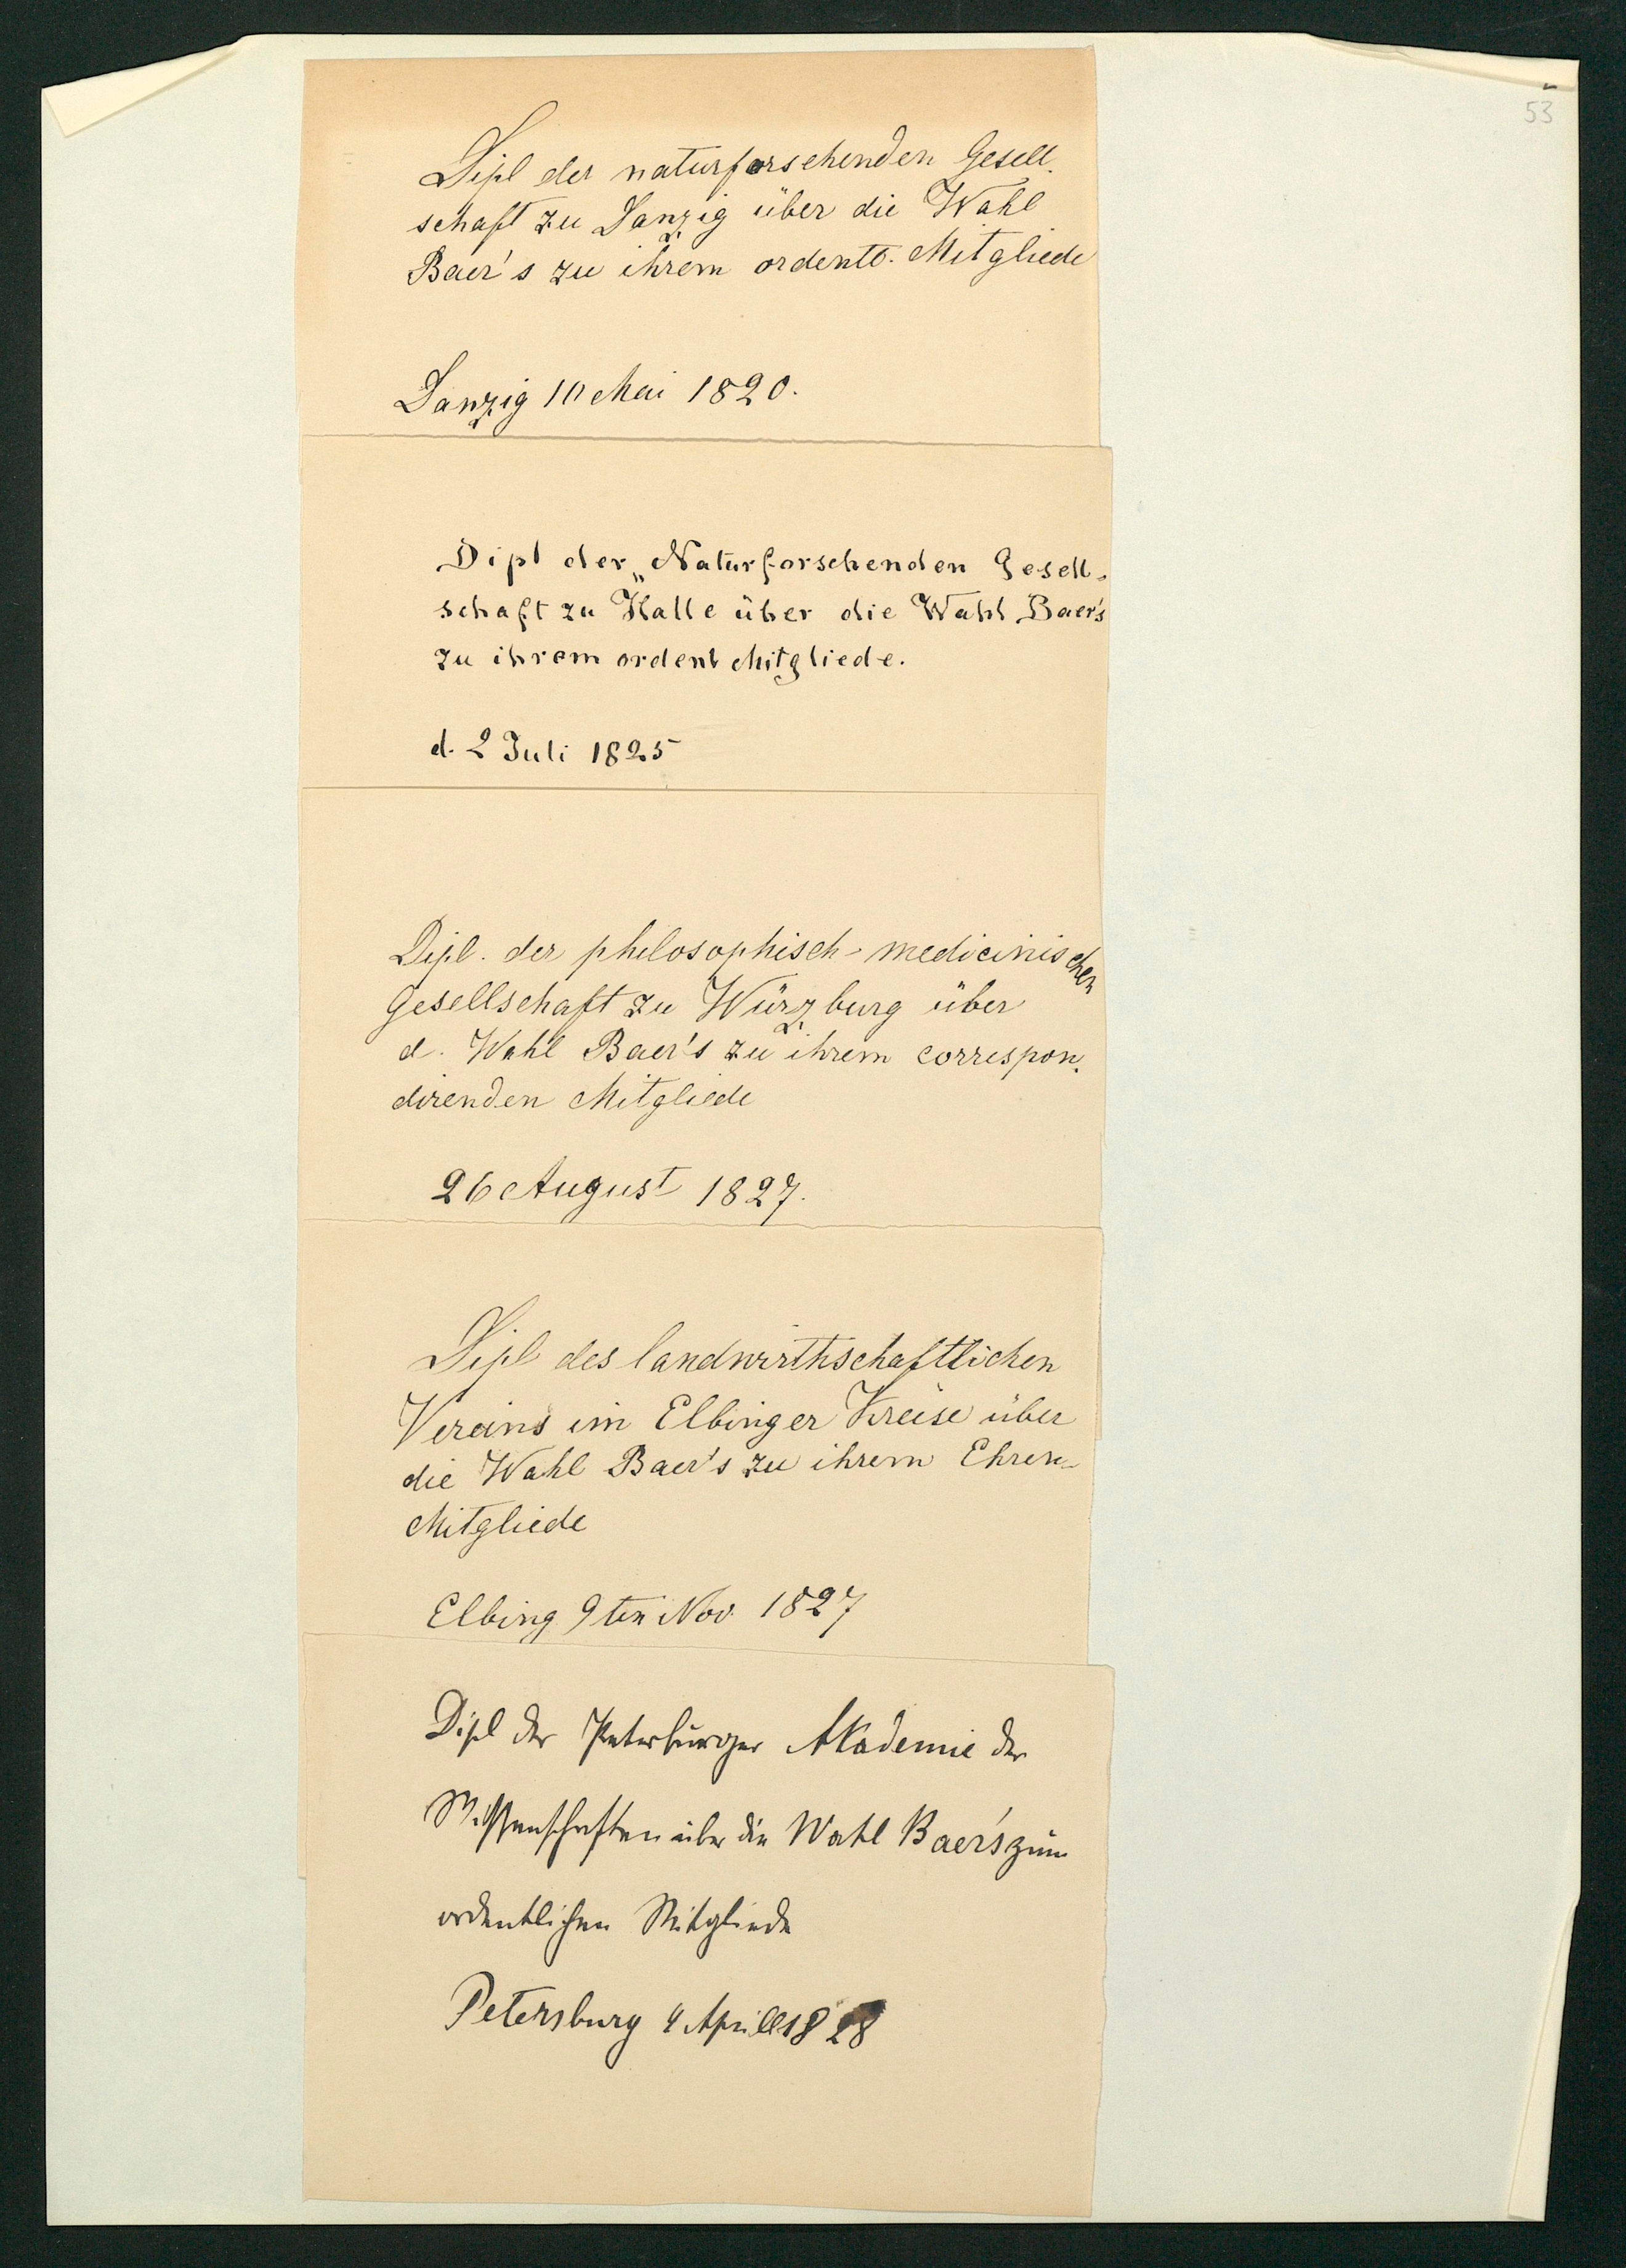 53
Dipl der naturforschenden Gesell-
schaft zu Danzig über die Wahl
Baer's zu ihrem ordentl. Mitgliede
Danzig 10 Mai 1820.
Dipl der „Naturforschenden Gesell-
schaft zu Halle über die Wahl Baer's
zu ihrem ordent Mitgliede.
d. 2 Juli 1825
Dipl. der philosophisch-medicinischen
Gesellschaft zu Würzburg über
d. Wahl Baer's zu ihrem correspon-
direnden Mitgliede
26 August 1827.
Dipl des landwirthschaftlichen
Vereins im Elbinger Kreise über
die Wahl Baer's zu ihrem Ehren-
Mitgliede
Elbing 9ten Nov. 1827
Dipl der Petersburger Akademie der
Wissenschaften über die Wahl Baer's zum
ordentlichen Mitgliede
Petersburg 4 Aprill 1828